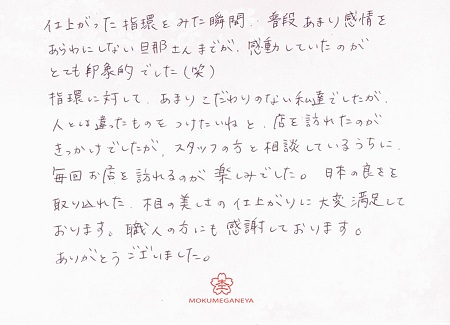 仕上がった指環をみた瞬間、普段あまり感情を
あらわにしない旦那さんまでが、感動していたのが
とても印象的でした(笑)
指環に対して、あまりこだわりのない私達でしたが、
人とは違ったものをつけたいねと、店を訪れたのが
きっかけでしたが、スタッフの方と相談しているうちに、
毎回お店を訪れるのが楽しみでした。日本の良さを
取り込れた、木目の美しさの仕上がりに大変満足して
おります。職人の方にも感謝しております。
ありがとうございました。
MOKUMEGANEYA